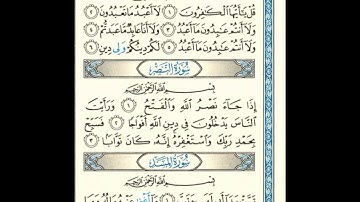 قُلْ يَٰٓأَيُّهَا ٱلْكَٰفِرُونَ ١ لَآ أَعْبُدُ مَا تَعْبُدُونَ ٢
وَلَآ أَنتُمْ عَٰبِدُونَ مَآ أَعْبُدُ ٣ وَلَآ أَنَا۠ عَابِدٌ مَّا عَبَدتُّمْ ٤
وَلَآ أَنتُمْ عَٰبِدُونَ مَآ أَعْبُدُ ٥ لَكُمْ دِينُكُمْ وَلِىَ دِينِ ٦
سُورَةُ النَّصْرِ
بِسْمِ ٱللَّهِ ٱلرَّحْمَٰنِ ٱلرَّحِيمِ
إِذَا جَآءَ نَصْرُ ٱللَّهِ وَٱلْفَتْحُ ١ وَرَأَيْتَ
ٱلنَّاسَ يَدْخُلُونَ فِى دِينِ ٱللَّهِ أَفْوَاجًا ٢ فَسَبِّحْ
بِحَمْدِ رَبِّكَ وَٱسْتَغْفِرْهُ إِنَّهُۥ كَانَ تَوَّابًۢا ٣
سُورَةُ المَسَدِ
بِسْمِ ٱللَّهِ ٱلرَّحْمَٰنِ ٱلرَّحِيمِ